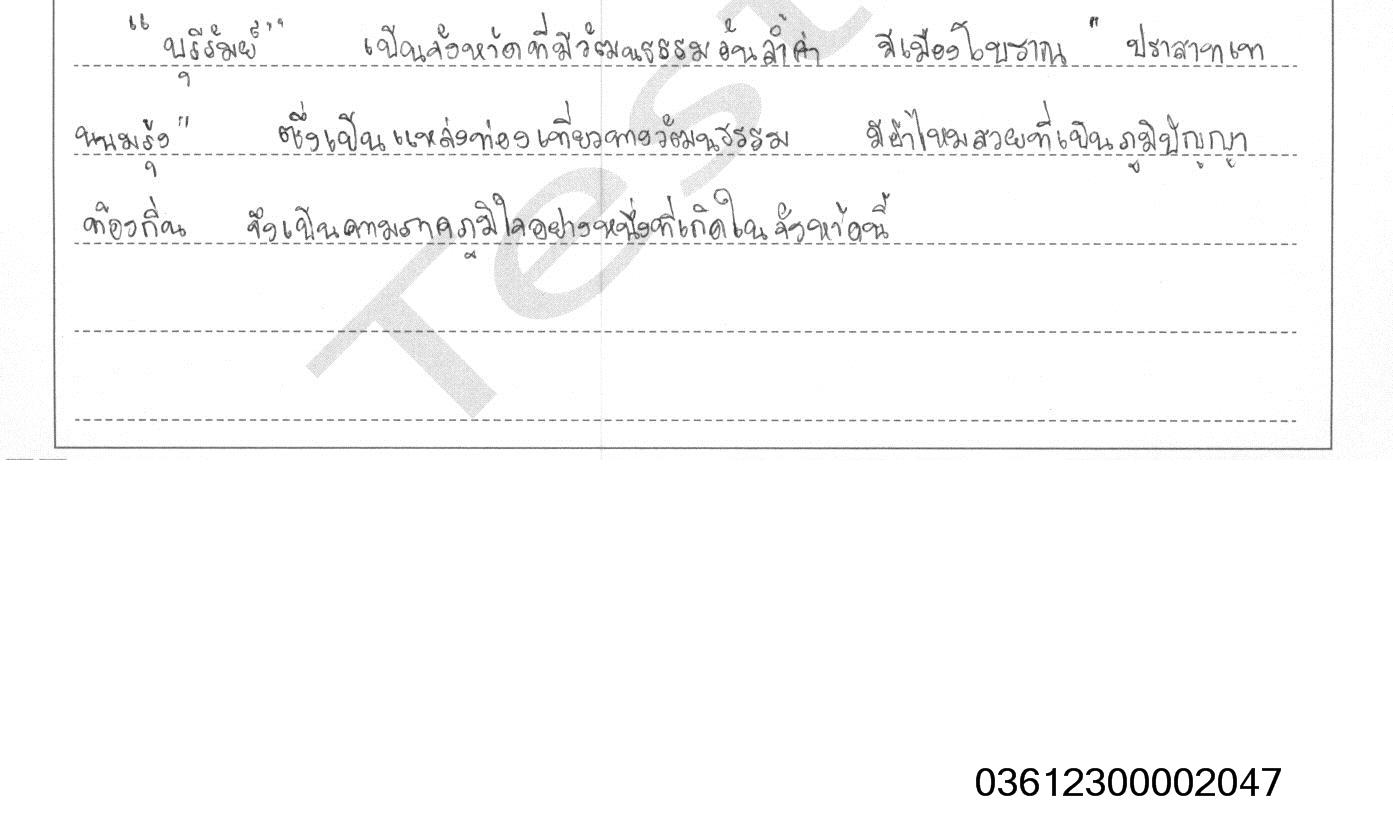 “ บุรีรัมย์ ” เป็นจังหวัดที่มีวัฒนธรรมอันล้ำค่า มีเมืองโบราณ " ปราสาทเท
พนมรุ้ง" ซึ่งเป็นแหล่งท่องเที่ยวทางวัฒนธรรม มีผ้าไหมสวยที่เป็นภูมิปัญญา
ท้องถิ่น จึงเป็นความภาคภูมิใจอย่างหนึ่งที่เกิดในจังหวัดนี้
Test
03612300002047